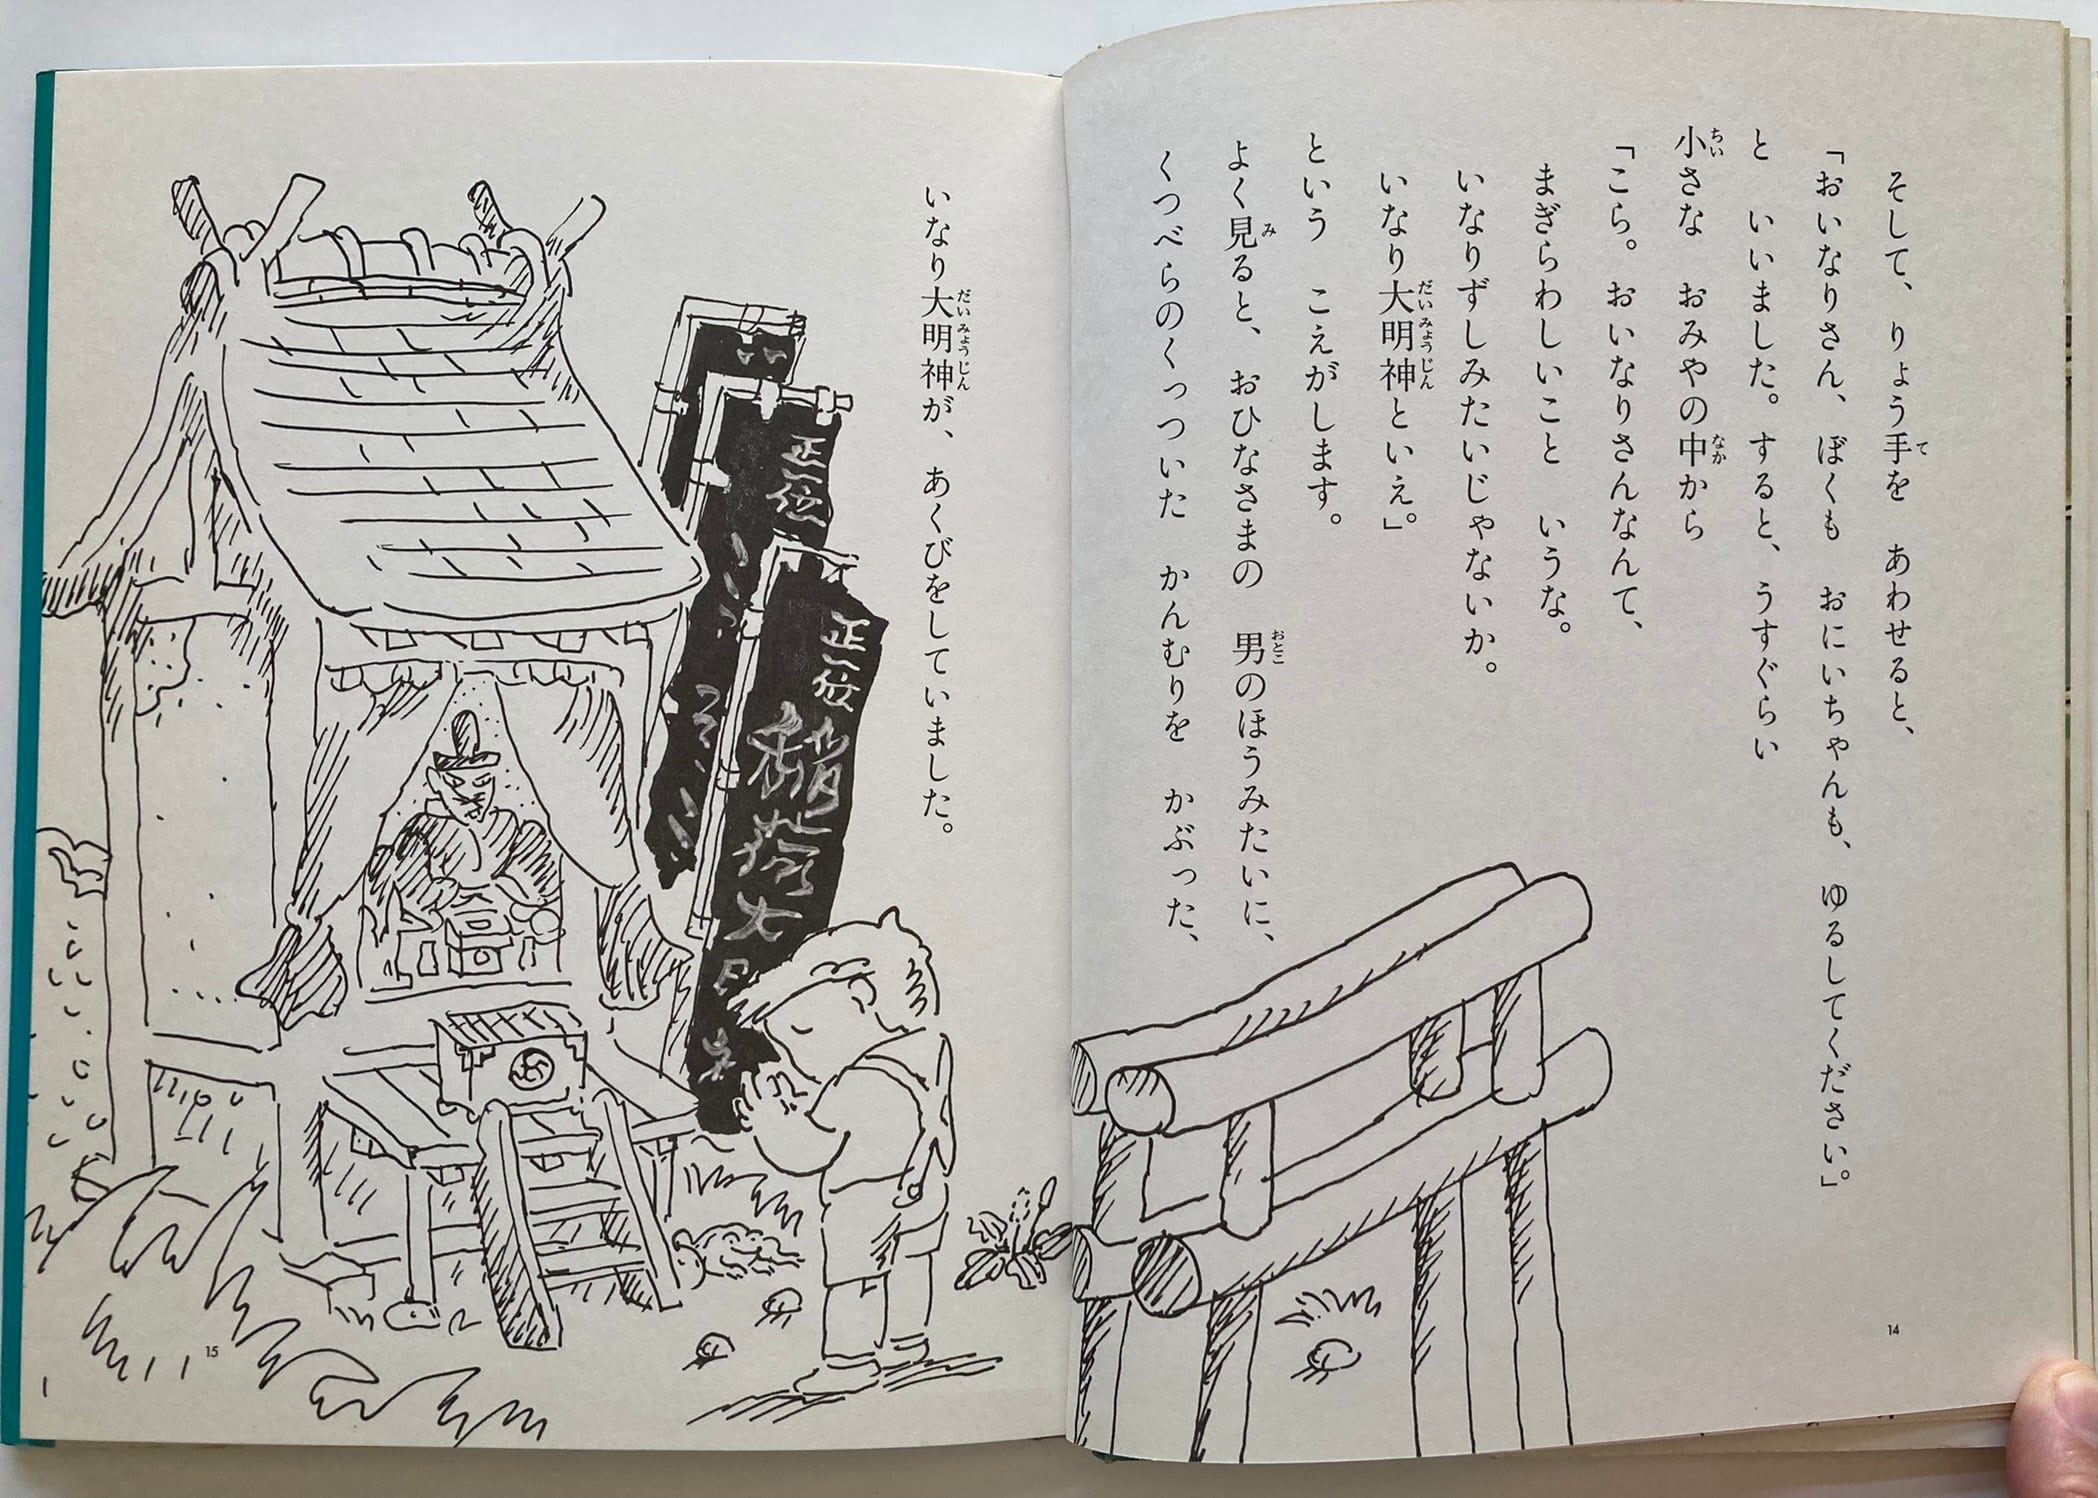 そして、りょう手を　あわせると、
「おいなりさん、ぼくも　おにいちゃんも、ゆるしてください」。
と　いいました。すると、うすぐらい
小さな　おみやの中から
「こら。おいなりさんなんて、
まぎらわしいこと　いうな。
いなりずしみたいじゃないか。
いなり大明神といえ」。
という　こえがします。
よく見ると、おひなさまの　男のほうみたいに、
くつべらのくっついた　かんむりを　かぶった、
14
いなり大明神が、あくびをしていました。
正一位
正一位
稲荷大
15